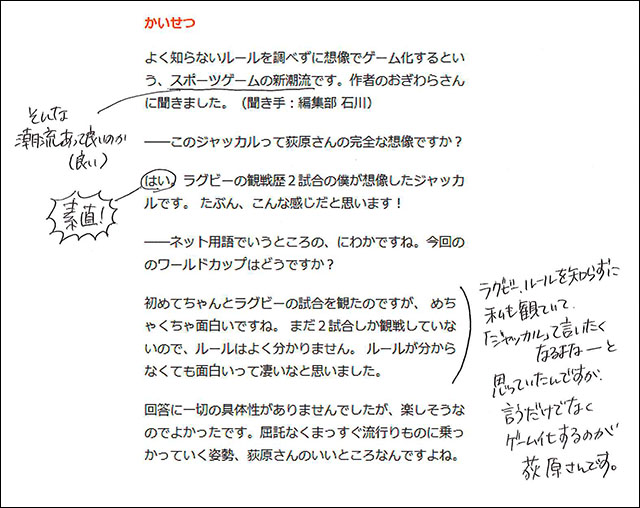 かいせつ
よく知らないルールを調べずに想像でゲーム化するとい
う、スポーツゲームの新潮流です。作者のおぎわらさん
に聞きました。（聞き手：編集部 石川）
そんな
潮流あって良いのか
(良い)
――このジャッカルって荻原さんの完全な想像ですか？
はい。ラグビーの観戦歴２試合の僕が想像したジャッカ
ルです。 たぶん、こんな感じだと思います！
素直!
――ネット用語でいうところの、にわかですね。今回の
のワールドカップはどうですか？
初めてちゃんとラグビーの試合を観たのですが、 めち
ゃくちゃ面白いですね。 まだ２試合しか観戦していな
いので、ルールはよく分かりません。 ルールが分から
なくても面白いって凄いなと思いました。
ラグビー、ルールを知らずに
私も観ていて、
「ジャッカル」って言いたく
なるよなーと
思っていたんですが、
言うだけでなく
ゲーム化するのが
荻原さんです。
回答に一切の具体性がありませんでしたが、楽しそうな
のでよかったです。屈託なくまっすぐ流行りものに乗っ
かっていく姿勢、荻原さんのいいところなんですよね。